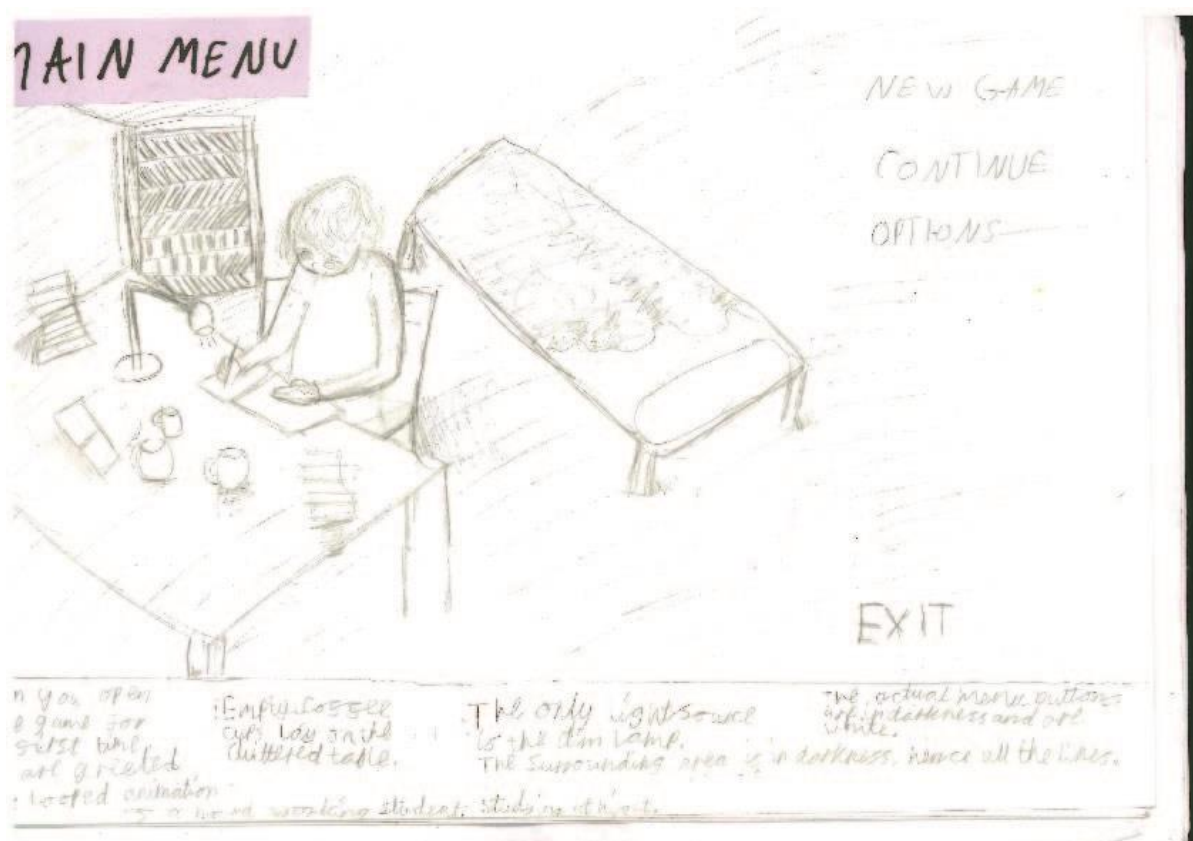 MAIN MENU
NEW GAME
CONTINUE
OPTIONS
EXIT
n you open
e game for
first time
are grieted
looped animation
a hard working student, studying at night.
:Empty Coffee
cups lay on the
cluttered table.
:The only light source
is the dim lamp.
The surrounding area is in darkness, hence all the lines.
The actual menu buttons
are in darkness and are
white.